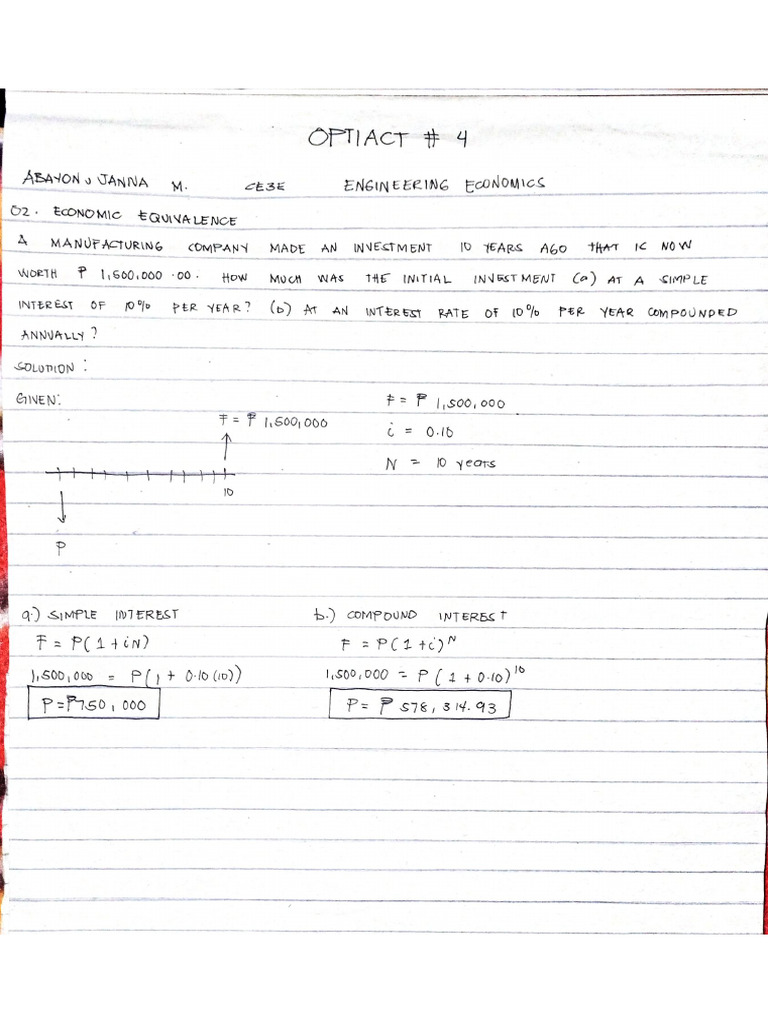 OPTIACT # 4
ABAYON, JANNA M. CE3E ENGINEERING ECONOMICS
02. ECONOMIC EQUIVALENCE
A MANUFACTURING COMPANY MADE AN INVESTMENT 10 YEARS AGO THAT IS NOW
WORTH ₱ 1,500,000.00. HOW MUCH WAS THE INITIAL INVESTMENT (a) AT A SIMPLE
INTEREST OF 10% PER YEAR? (b) AT AN INTEREST RATE OF 10% PER YEAR COMPOUNDED
ANNUALLY?
SOLUTION:
GIVEN:
F = ₱ 1,500,000
F = ₱ 1,500,000
i = 0.10
N = 10 years
10
P
a.) SIMPLE INTEREST b.) COMPOUND INTEREST
F = P(1+iN) F = P(1+i)^N
1,500,000 = P(1 + 0.10(10)) 1,500,000 = P(1 + 0.10)^10
P=₱750,000 P= ₱ 578,314.93